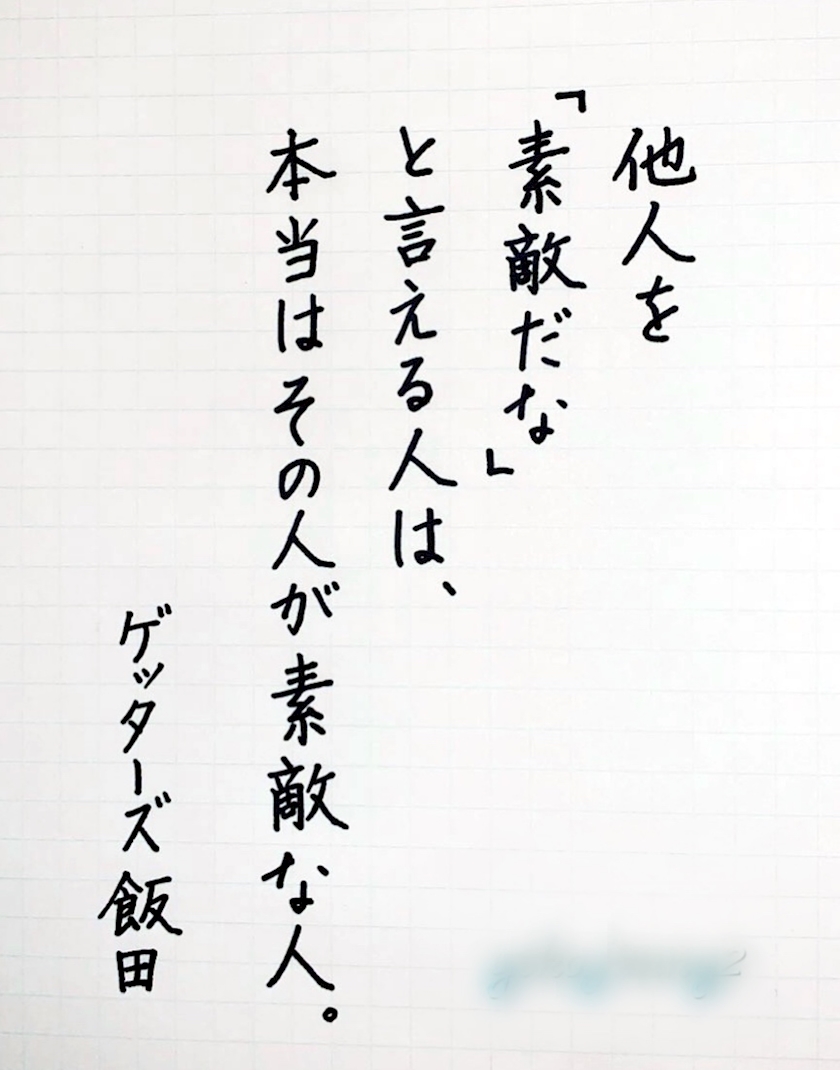 他人を
「素敵だな」
と言える人は、
本当はその人が素敵な人。
ゲッターズ飯田